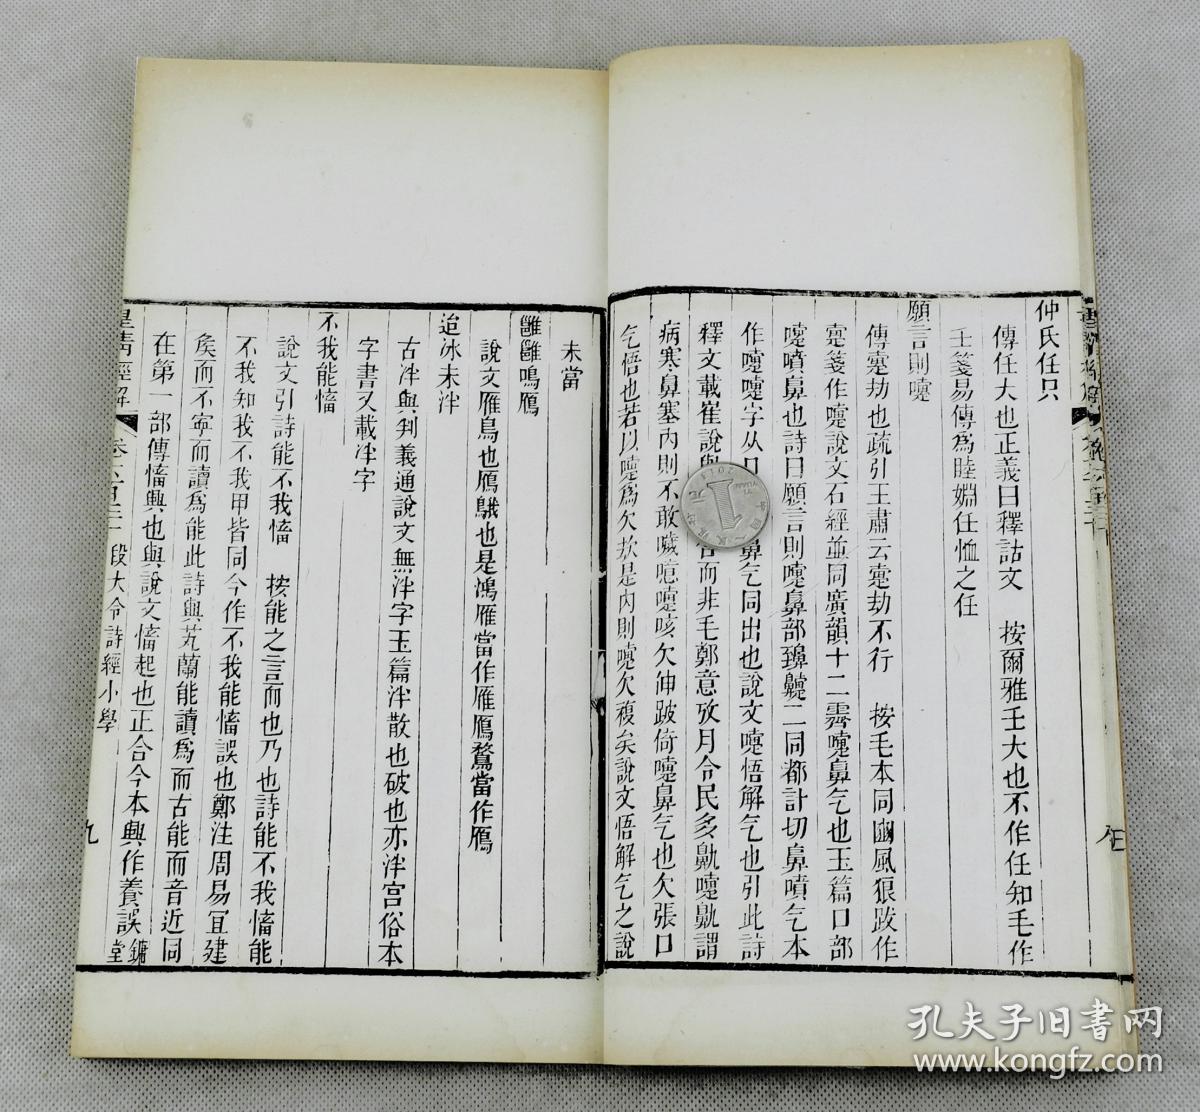 仲氏任只
傳任大也正義曰釋詁文　按爾雅壬大也不作任知毛作
壬箋易傳爲睦婣任恤之任
願言則嚏
傳疐劫也疏引王肅云疐劫不行　按毛本同豳風狼跋作
疐箋作嚏說文石經並同廣韻十二霽嚏鼻气也玉篇口部
嚏噴鼻也詩曰願言則嚏鼻部
二同都計切鼻噴气本
作嚏嚏字从口
鼻气同出也說文嚏悟解气也引此詩
釋文載崔說與
而非毛鄭意攷月令民多鼽嚏鼽謂
病寒鼻塞內則不敢噦噫嚏咳欠伸跛倚嚏鼻气也欠張口
气悟也若以嚏爲欠欬是內則嚏欠複矣說文悟解气之說
未當
雝雝鳴鴈
說文雁鳥也鴈鵝也是鴻雁當作雁鴈鶩當作鴈
迨冰未泮
古泮與判義通說文無泮字玉篇泮散也破也亦泮宮俗本
字書又載冸字
不我能慉
說文引詩能不我慉　按能之言而也乃也詩能不我慉能
不我知我不我甲皆同今作不我能慉誤也鄭注周易宜建
矦而不寧而讀爲能此詩與芄蘭能讀爲而古能而音近同
在第一部傳慉興也與說文慉起也正合今本興作養誤
皇清經解
卷六百三十
段大令詩經小學
九
鏞堂
1
孔夫子旧书网
www.kongfz.com